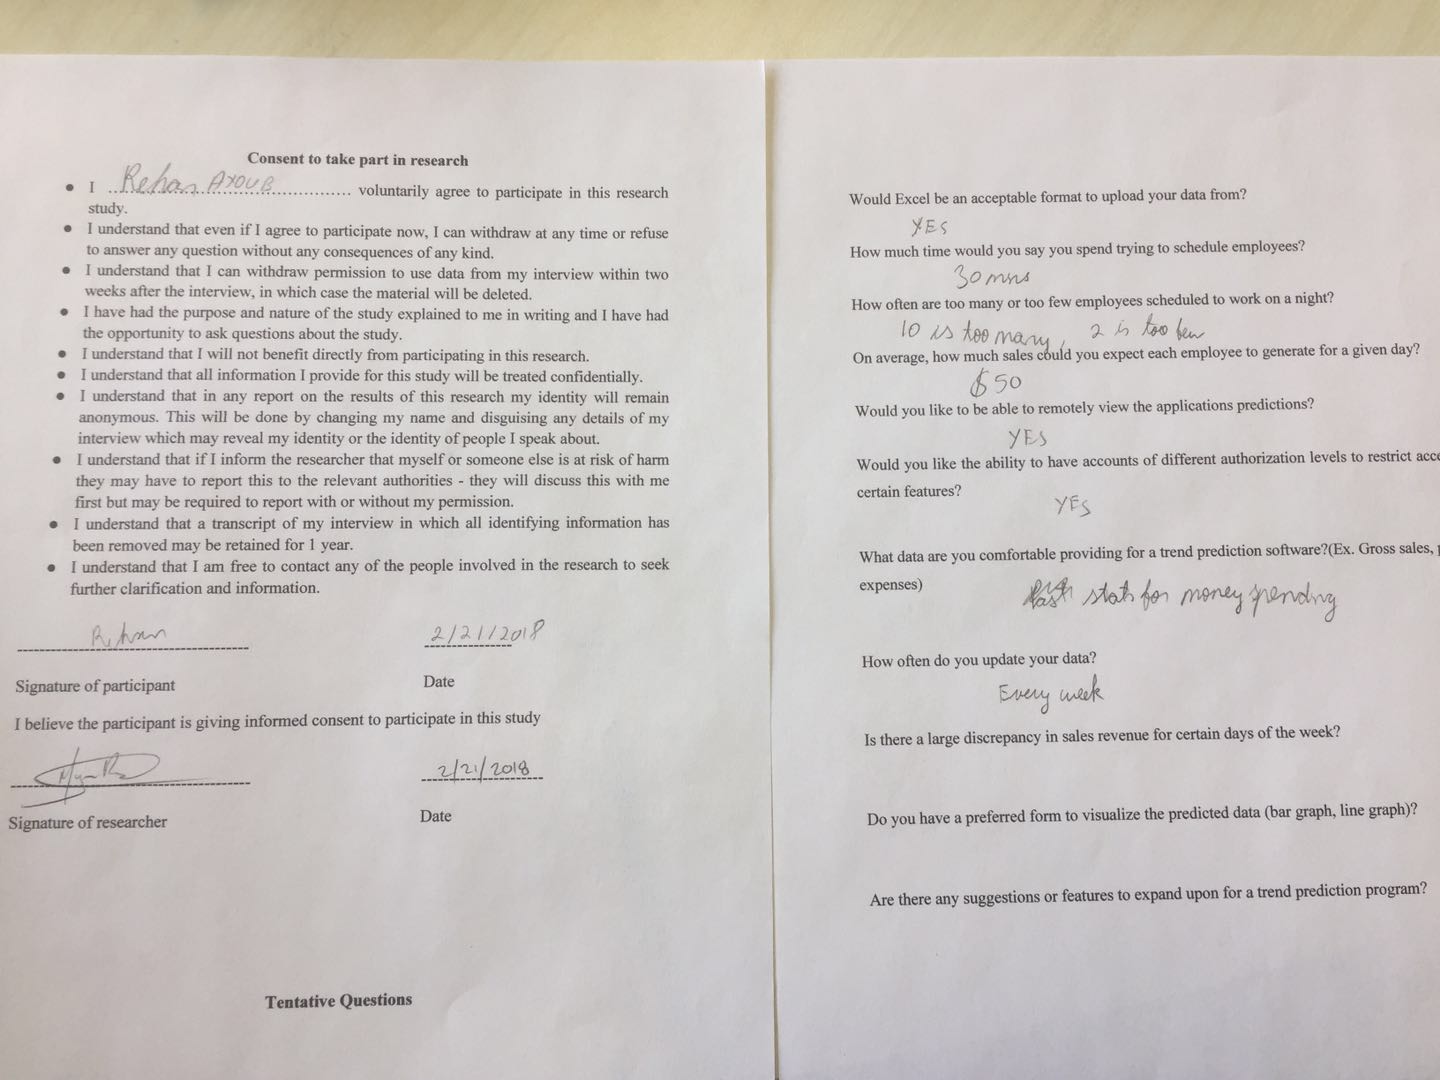 Consent to take part in research
I ..Rehan AYOUB.................. voluntarily agree to participate in this research
study.
I understand that even if I agree to participate now, I can withdraw at any time or refuse
to answer any question without any consequences of any kind.
I understand that I can withdraw permission to use data from my interview within two
weeks after the interview, in which case the material will be deleted.
I have had the purpose and nature of the study explained to me in writing and I have had
the opportunity to ask questions about the study.
I understand that I will not benefit directly from participating in this research.
I understand that all information I provide for this study will be treated confidentially.
I understand that in any report on the results of this research my identity will remain
anonymous. This will be done by changing my name and disguising any details of my
interview which may reveal my identity or the identity of people I speak about.
I understand that if I inform the researcher that myself or someone else is at risk of harm
they may have to report this to the relevant authorities - they will discuss this with me
first but may be required to report with or without my permission.
I understand that a transcript of my interview in which all identifying information has
been removed may be retained for 1 year.
I understand that I am free to contact any of the people involved in the research to seek
further clarification and information.
Rehan 2/21/2018
Signature of participant Date
I believe the participant is giving informed consent to participate in this study
2/21/2018
Signature of researcher Date
Tentative Questions
Would Excel be an acceptable format to upload your data from?
YES
How much time would you say you spend trying to schedule employees?
30 mns
How often are too many or too few employees scheduled to work on a night?
10 is too many, 2 is too few
On average, how much sales could you expect each employee to generate for a given day?
$50
Would you like to be able to remotely view the applications predictions?
YES
Would you like the ability to have accounts of different authorization levels to restrict acce
certain features?
YES
What data are you comfortable providing for a trend prediction software?(Ex. Gross sales,
expenses)
stats for money spending
How often do you update your data?
Every week
Is there a large discrepancy in sales revenue for certain days of the week?
Do you have a preferred form to visualize the predicted data (bar graph, line graph)?
Are there any suggestions or features to expand upon for a trend prediction program?